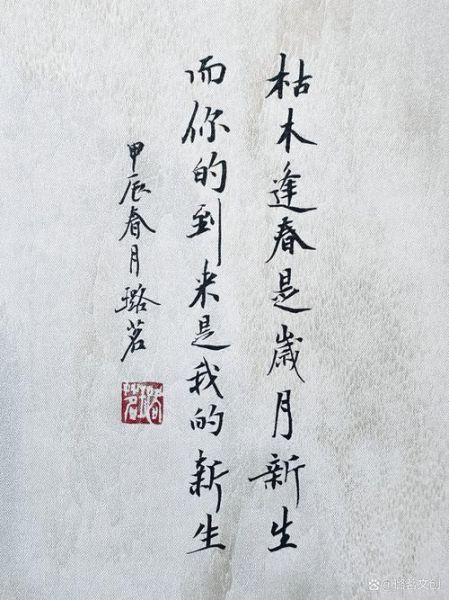 枯木逢春是歲月新生
而你的到来是我的新生
甲辰春月璐茗
璐茗
@璐茗文创